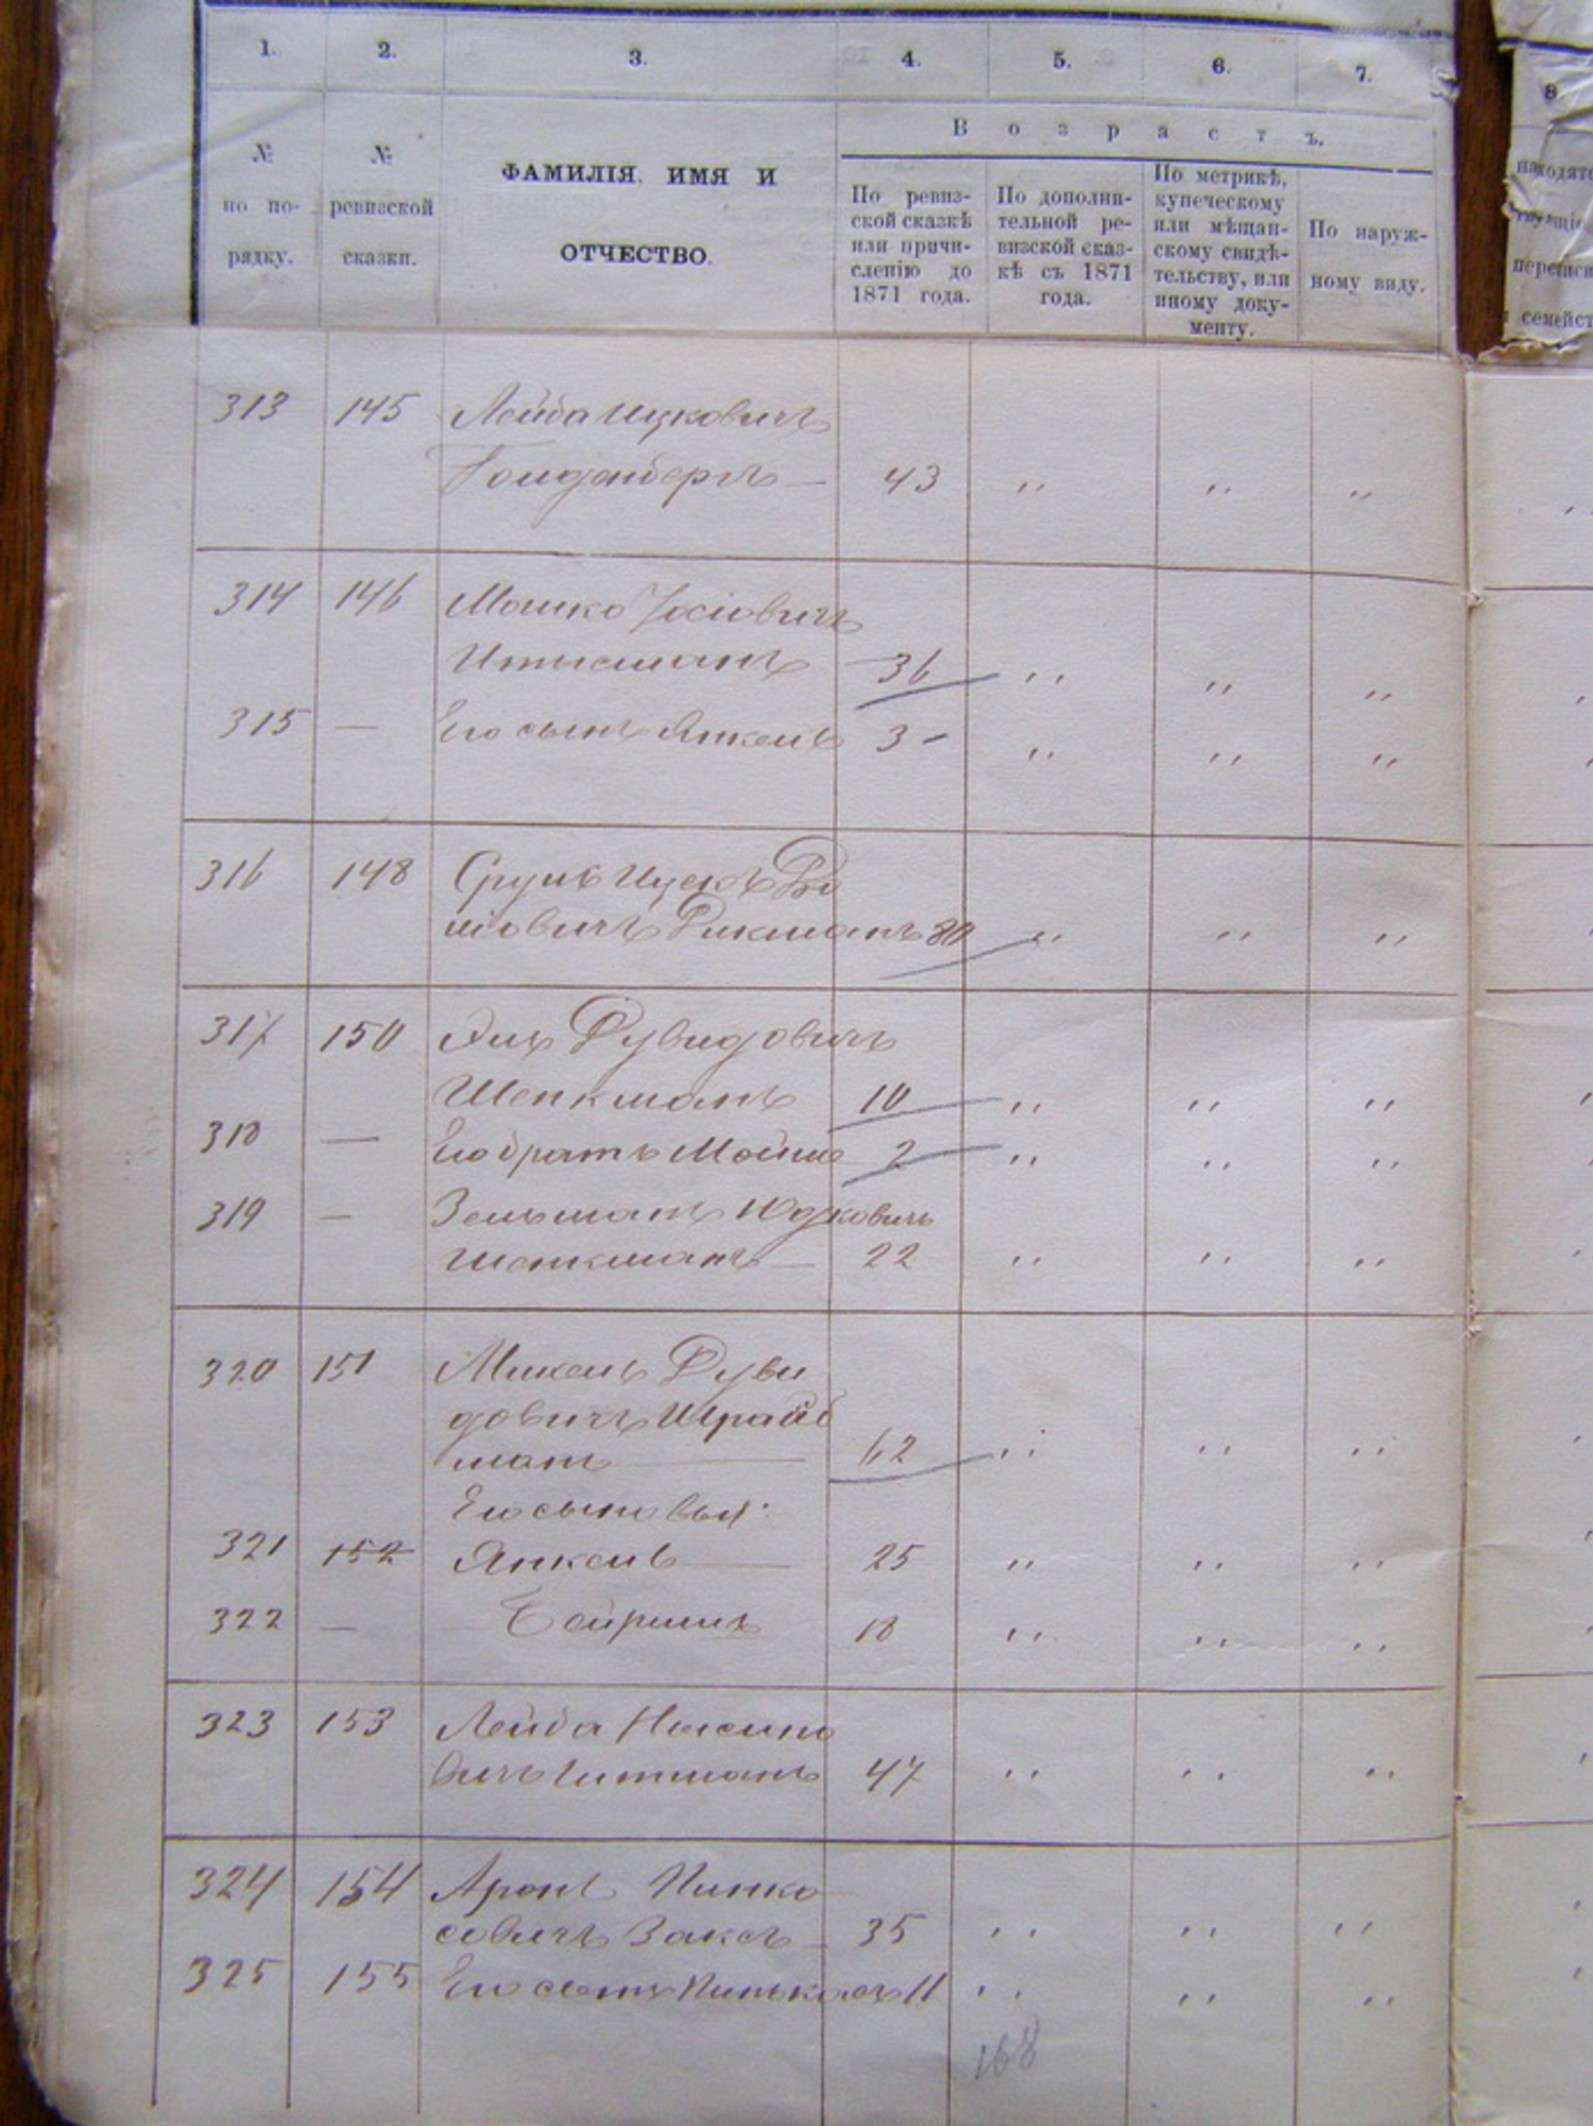 1. 2. 3. 4. 5. 6. 7. 8
№ по по- рядку.
№ ревизской сказки.
ФАМИЛІЯ. ИМЯ И
ОТЧЕСТВО.
Возрастъ.
По ревиз-
ской сказкѣ
или причи-
сленію до
1871 года.
По дополни-
тельной ре-
визской сказ-
кѣ съ 1871
года.
По метрикѣ,
купеческому
или мѣщан-
скому свидѣ-
тельству, или
иному доку-
менту.
По наруж-
ному виду.
семейст
313 145 Лейба Ицковичъ
Гольденбергъ — 43 " " "
314 146 Мошко Іосіовичъ
36 " " "
315 — Его сынъ Янкель 3 - " " "
316 148 Сруль
Рикманъ " " "
317 150 Дувидовичъ
Шенкманъ 10 " " "
318 — Его братъ Мойше 2 " " "
319 — Зельманъ Юдковичъ
Шенкманъ — 22 " " "
320 151 Михель Дуви
довичъ Шрайб
манъ — 62 " " "
Его сыновья:
321 152 Янкель — 25 " " "
322 — Бейришъ 18 " " "
323 153 Лейба Нысино
вичъ Гитманъ 47 " " "
324 154 Аронъ Пинко
совичъ Заксъ — 35 " " "
325 155 Его сынъ Пинькасъ 11 " " "
168